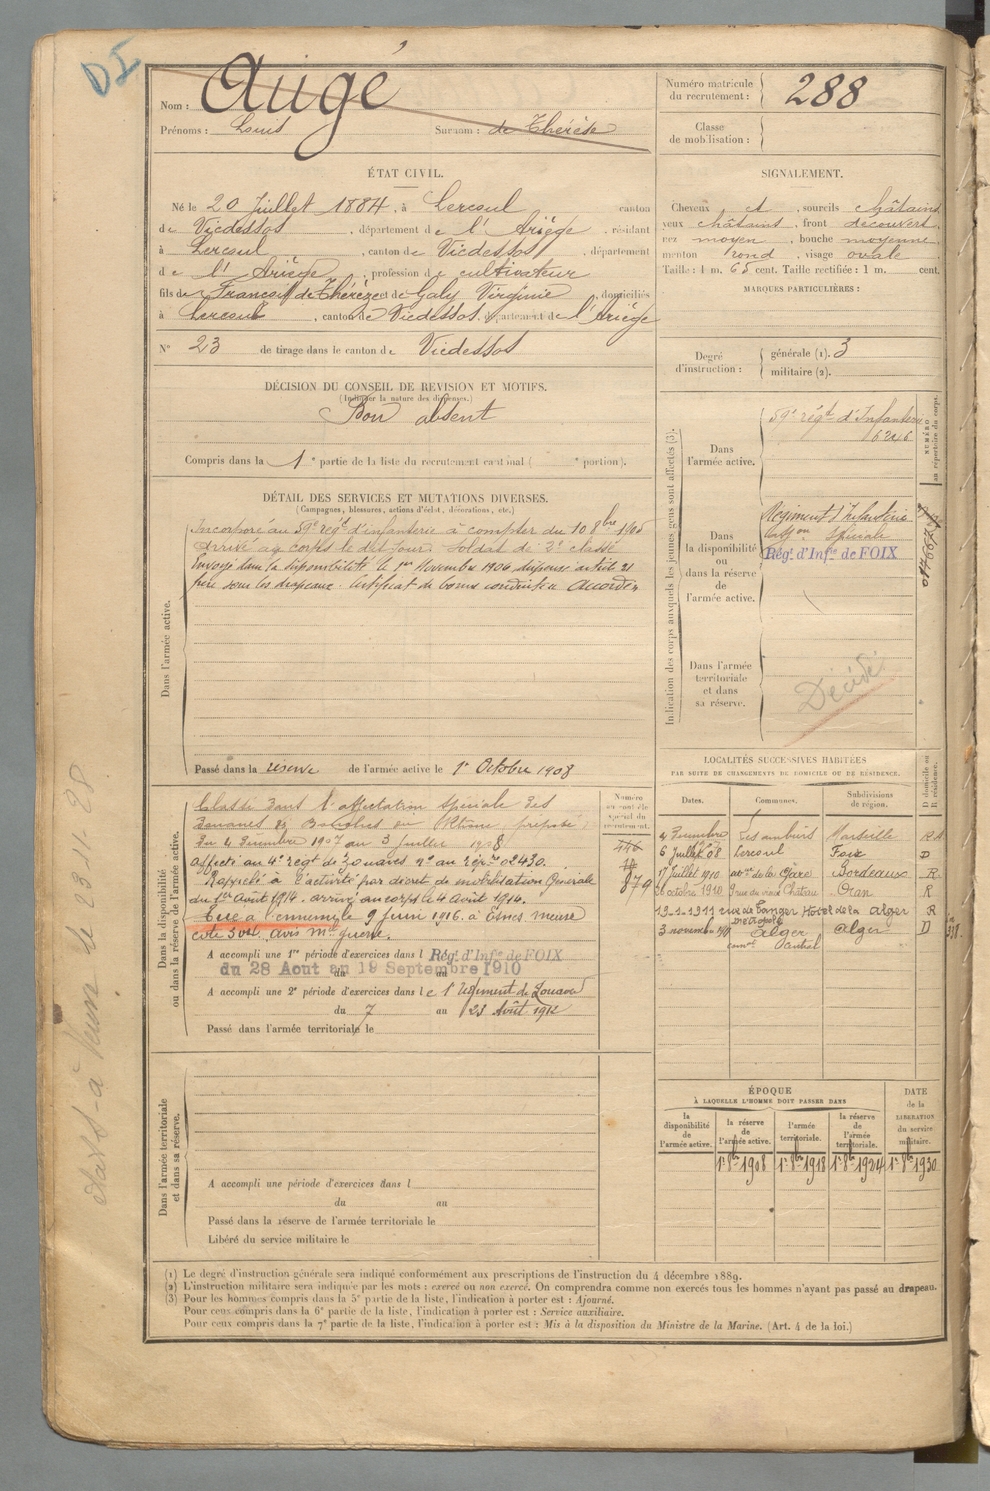 DI
Nom : Augé
Prénoms : Louis Surnom : de Thérèse
Numéro matricule
du recrutement : 288
Classe
de mobilisation :
ÉTAT CIVIL.
Né le 20 Juillet 1884, à Lercoul canton
de Vicdessos, département de l'Ariège, résidant
à Lercoul, canton de Vicdessos, département
de l'Ariège, profession de cultivateur
fils de François de Thérèze et de Galy Virginie, domiciliés
à Lercoul, canton de Vicdessos, département de l'Ariège
N° 23 de tirage dans le canton de Vicdessos
SIGNALEMENT.
Cheveux et, sourcils châtains
yeux châtains, front découvert,
nez moyen, bouche moyenne,
menton rond, visage ovale
Taille : 1 m. 65 cent. Taille rectifiée : 1 m. cent.
MARQUES PARTICULIÈRES :
Degré
d'instruction :
générale (1). 3
militaire (2).
DÉCISION DU CONSEIL DE REVISION ET MOTIFS.
(Indiquer la nature des dispenses.)
Bon absent
Compris dans la 1e partie de la liste du recrutement cantonal ( e portion).
DÉTAIL DES SERVICES ET MUTATIONS DIVERSES.
(Campagnes, blessures, actions d'éclat, décorations, etc.)
Dans l'armée active.
Incorporé au 59e régt d'infanterie à compter du 10 8bre 1905
Arrivé au corps le dit jour. Soldat de 2e classe
Envoyé dans la disponibilité le 1er Novembre 1906, dispensé article 21
frère sous les drapeaux. Certificat de bonne conduite Accordé
Passé dans la réserve de l'armée active le 1er Octobre 1908
Indication des corps auxquels les jeunes gens sont affectés (3).
NUMÉRO
au répertoire du corps.
Dans
l'armée active.
59e régt d'Infanterie
6246
Dans
la disponibilité
ou
dans la réserve
de
l'armée active.
Régiment d'Infanterie
Affon Spéciale
Régt d'Infie de FOIX
Dans l'armée
territoriale
et dans
sa réserve.
Décédé
Dans la disponibilité
ou dans la réserve de l'armée active.
Classé dans l'affectation spéciale des
Douanes des Bouches du Rhône, préposé
Du 4 Décembre 1907 au 3 Juillet 1908
Affecté au 4e régt de zouaves no au répre 02430.
Rappelé à l'activité par décret de mobilisation Générale
du 1er Août 1914. arrivé au corps le 4 Août 1914.
Tué à l'ennemi le 9 Juin 1916 à Esnes Meuse
cote 304. avis mtel guerre.
A accompli une 1re période d'exercices dans l Régt d'Infie de FOIX
du 28 Aout au 19 Septembre 1910
A accompli une 2e période d'exercices dans le 1er Régiment de Zouaves
du 7 au 23 Août 1912
Passé dans l'armée territoriale le
Numéro
au contrôle
spécial du
recrutement.
446
879
LOCALITÉS SUCCESSIVES HABITÉES
PAR SUITE DE CHANGEMENTS DE DOMICILE OU DE RÉSIDENCE.
Dates. Communes. Subdivisions
de région. D domicile ou
R résidence.
4 Décembre Marseille R
6 Juillet 08 Lercoul Foix D
17 Juillet 1910 de la Gare Bordeaux R
26 octobre 1910 9 rue du vieux Château Oran R
12-1-1911 rue de Tanger Hôtel de la Alger R
Métropole
3 novembre Alger Alger D
ÉPOQUE
À LAQUELLE L'HOMME DOIT PASSER DANS
DATE
de la
LIBÉRATION
du service
militaire.
la
disponibilité
de
l'armée active.
la réserve
de
l'armée active.
l'armée
territoriale.
la réserve
de
l'armée
territoriale.
1er 8bre 1908 1er 8bre 1918 1er 8bre 1924 1er 8bre 1930
Dans l'armée territoriale
et dans sa réserve.
A accompli une période d'exercices dans l
du au
Passé dans la réserve de l'armée territoriale le
Libéré du service militaire le
(1) Le degré d'instruction générale sera indiqué conformément aux prescriptions de l'instruction du 4 décembre 1889.
(2) L'instruction militaire sera indiquée par les mots : exercé ou non exercé. On comprendra comme non exercés tous les hommes n'ayant pas passé au drapeau.
(3) Pour les hommes compris dans la 5e partie de la liste, l'indication à porter est : Ajourné.
Pour ceux compris dans la 6e partie de la liste, l'indication à porter est : Service auxiliaire.
Pour ceux compris dans la 7e partie de la liste, l'indication à porter est : Mis à la disposition du Ministre de la Marine. (Art. 4 de la loi.)